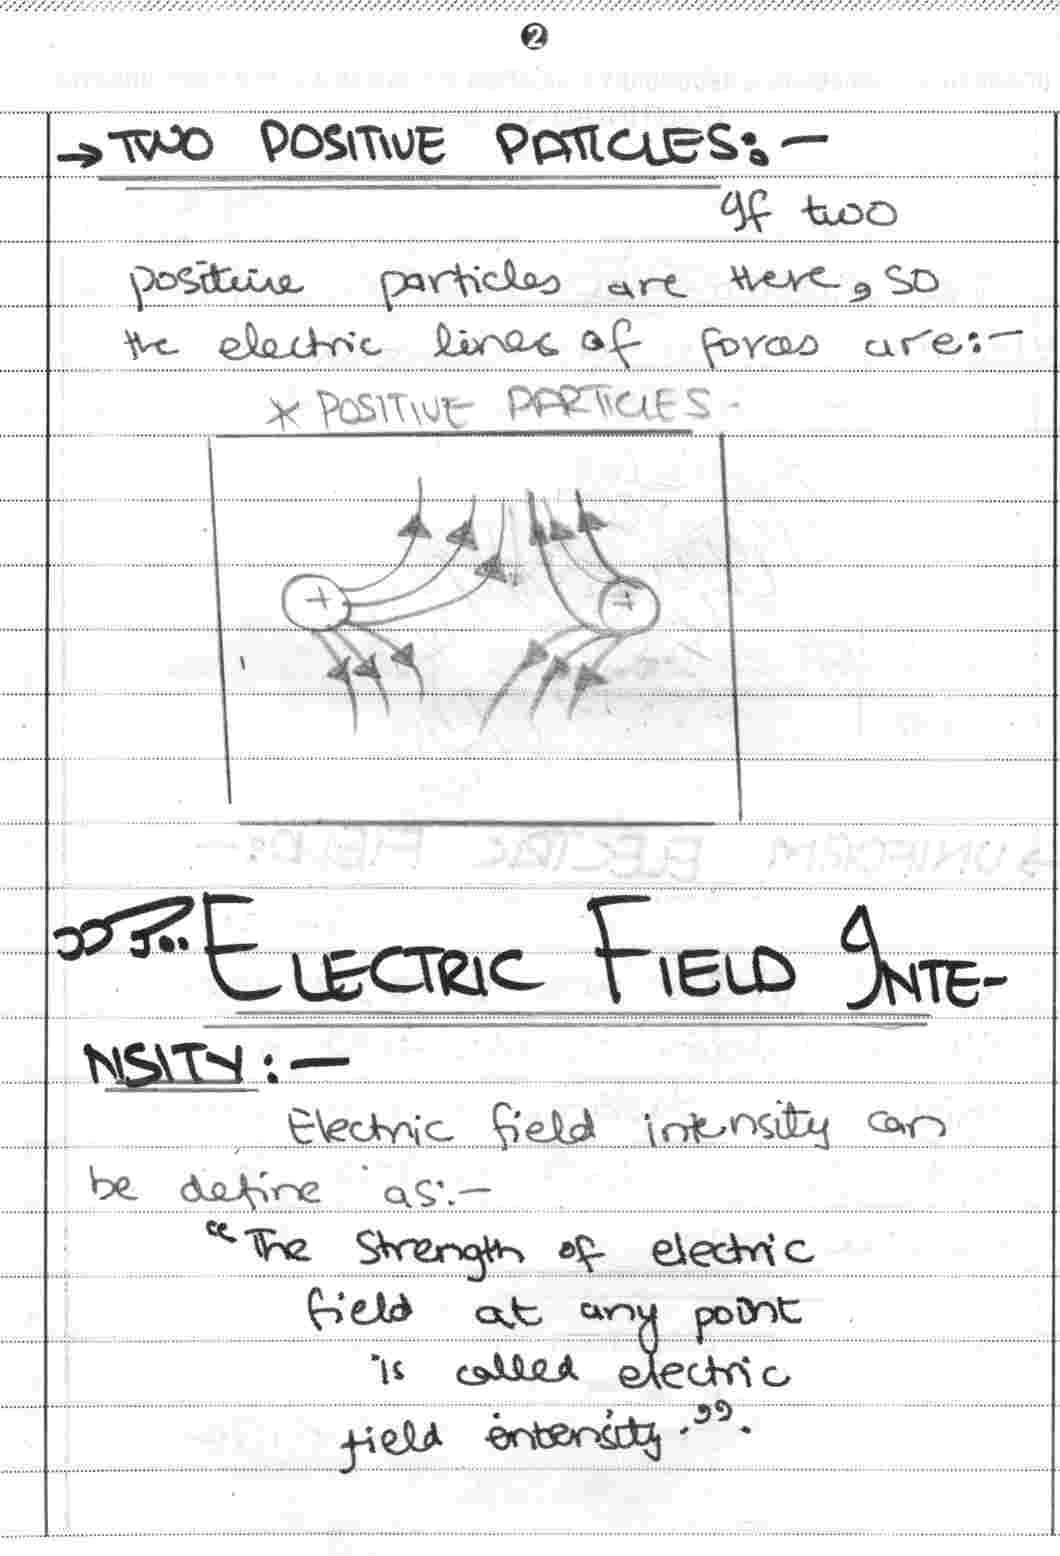 2
→ TWO POSITIVE PATICLES:-
If two
positive particles are there, so
the electric lines of forces are:-
* POSITIVE PARTICLES.
+ +
ELECTRIC FIELD INTE-
NSITY:-
Electric field intensity can
be define as:-
"The Strength of electric
field at any point
is called electric
field intensity.".